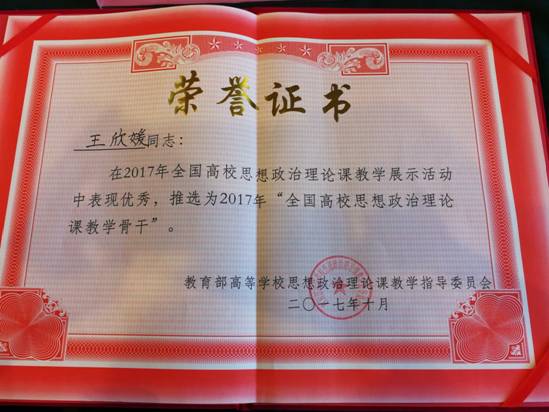 荣誉证书
王欣媛同志：
在2017年全国高校思想政治理论课教学展示活动
中表现优秀，推选为2017年“全国高校思想政治理论
课教学骨干”。
教育部高等学校思想政治理论课教学指导委员会
二〇一七年十月